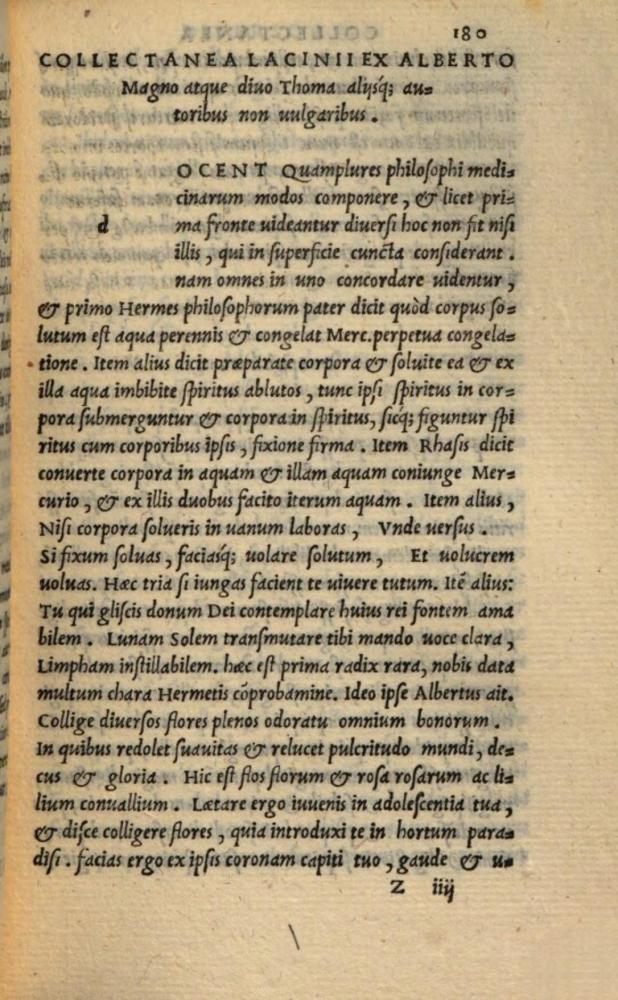 180
COLLECTANEA LACINII EX ALBERTO
Magno atque diuo Thoma alijsq́; au=
toribus non uulgaribus.
OCENT Quamplures philosophi medi=
cinarum modos componere, & licet pri=
d ma fronte uideantur diuersi hoc non fit nisi
illis, qui in superficie cuncta considerant.
nam omnes in uno concordare uidentur,
& primo Hermes philosophorum pater dicit quòd corpus so=
lutum est aqua perennis & congelat Merc. perpetua congela=
tione. Item alius dicit præparate corpora & soluite ea & ex
illa aqua imbibite spiritus ablutos, tunc ipsi spiritus in cor=
pora submerguntur & corpora in spiritus, sicq́; figuntur spi
ritus cum corporibus ipsis, fixione firma. Item Rhasis dicit
conuerte corpora in aquam & illam aquam coniunge Mer=
curio, & ex illis duobus facito iterum aquam. Item alius,
Nisi corpora solueris in uanum laboras, Vnde uersus.
Si fixum soluas, faciasq́; uolare solutum, Et uolucrem
uoluas. Hæc tria si iungas facient te uiuere tutum. Itē alius:
Tu qui gliscis donum Dei contemplare huius rei fontem ama
bilem. Lunam Solem transmutare tibi mando uoce clara,
Limpham instillabilem. hæc est prima radix rara, nobis data
multum chara Hermetis cōprobamine. Ideo ipse Albertus ait.
Collige diuersos flores plenos odoratu omnium bonorum.
In quibus redolet suauitas & relucet pulcritudo mundi, de=
cus & gloria. Hic est flos florum & rosa rosarum ac li=
lium conuallium. Lætare ergo iuuenis in adolescentia tua,
& disce colligere flores, quia introduxi te in hortum para=
disi. facias ergo ex ipsis coronam capiti tuo, gaude & u=
Z iiij